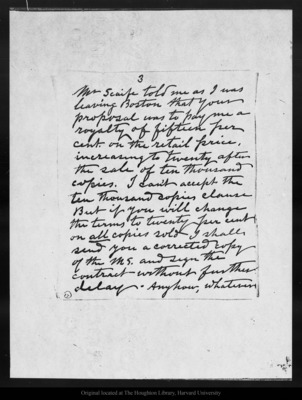 3
Mr Scaife told me as I was
leaving Boston that your
proposal was to pay me a
royalty of fifteen per
cent. on the retail price,
increasing to twenty after
the sale of ten thousand
copies. I can't accept the
ten thousand copies clause
But if you will change
the terms to twenty per cent
on all copies sold I shall
send you a corrected copy
of the MS. and sign the
contract without further
delay. Anyhow, whatever
Original located at The Houghton Library, Harvard University